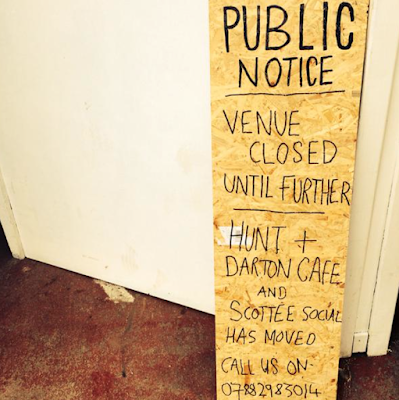 PUBLIC
NOTICE
VENUE
CLOSED
UNTIL FURTHER
HUNT +
DARTON CAFE
AND
SCOTTEE SOCIAL
HAS MOVED
CALL US ON.
07882983014